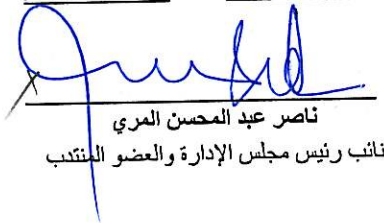 ناصر عبد المحسن المري
نائب رئيس مجلس الإدارة والعضو المنتدب